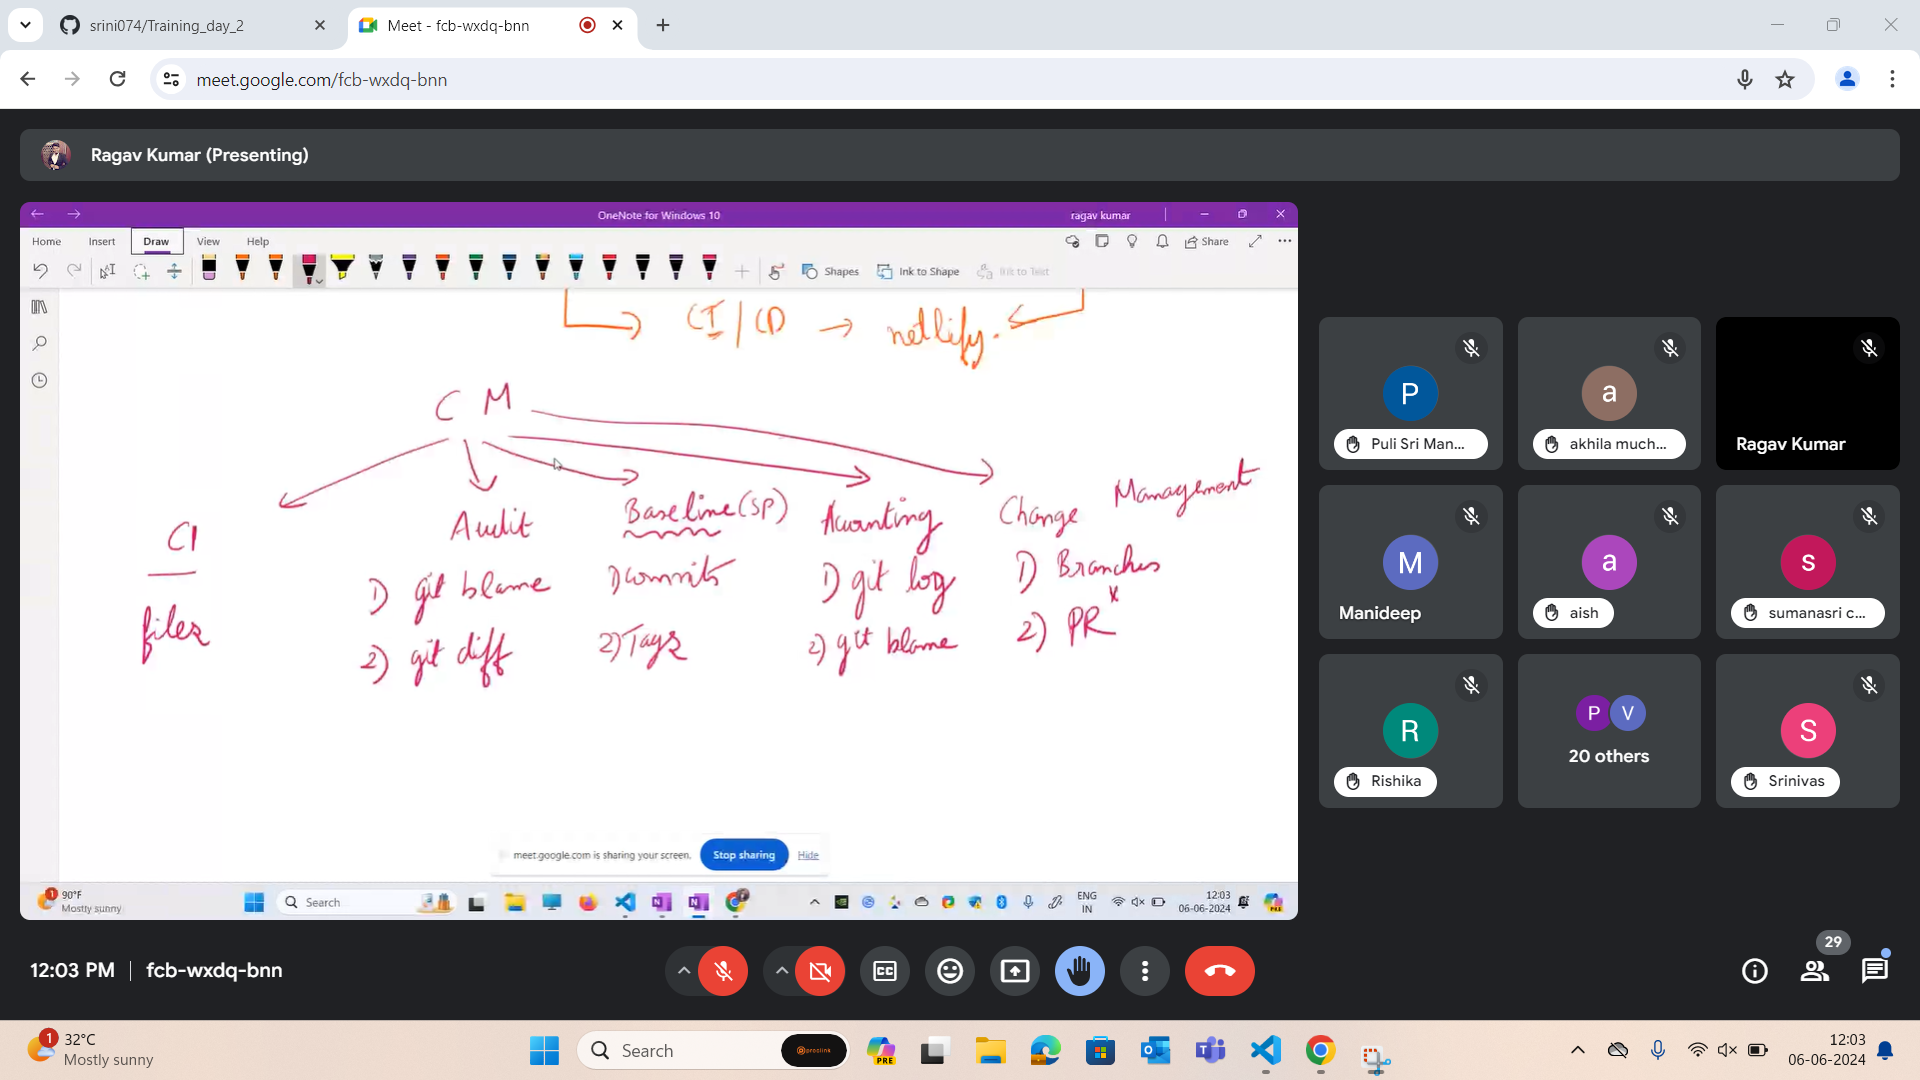 srini074/Training_day_2
Meet - fcb-wxdq-bnn
meet.google.com/fcb-wxdq-bnn
Ragav Kumar (Presenting)
OneNote for Windows 10
ragav kumar
Home Insert Draw View Help
Share
Shapes Ink to Shape Ink to Text
CI/CD → netlify.
C M
CI
files
Audit
1) git blame
2) git diff
Baseline (SP)
1) commits
2) Tags
Accounting
1) git log
2) git blame
Change Management
1) Branches
2) PR
meet.google.com is sharing your screen. Stop sharing Hide
1 90°F
Mostly sunny
Search
ENG
IN
12:03
06-06-2024
P
Puli Sri Man...
a
akhila much...
Ragav Kumar
M
Manideep
a
aish
s
sumanasri c...
R
Rishika
P V
20 others
S
Srinivas
12:03 PM | fcb-wxdq-bnn
CC
29
1 32°C
Mostly sunny
Search
proclink
PRE
12:03
06-06-2024